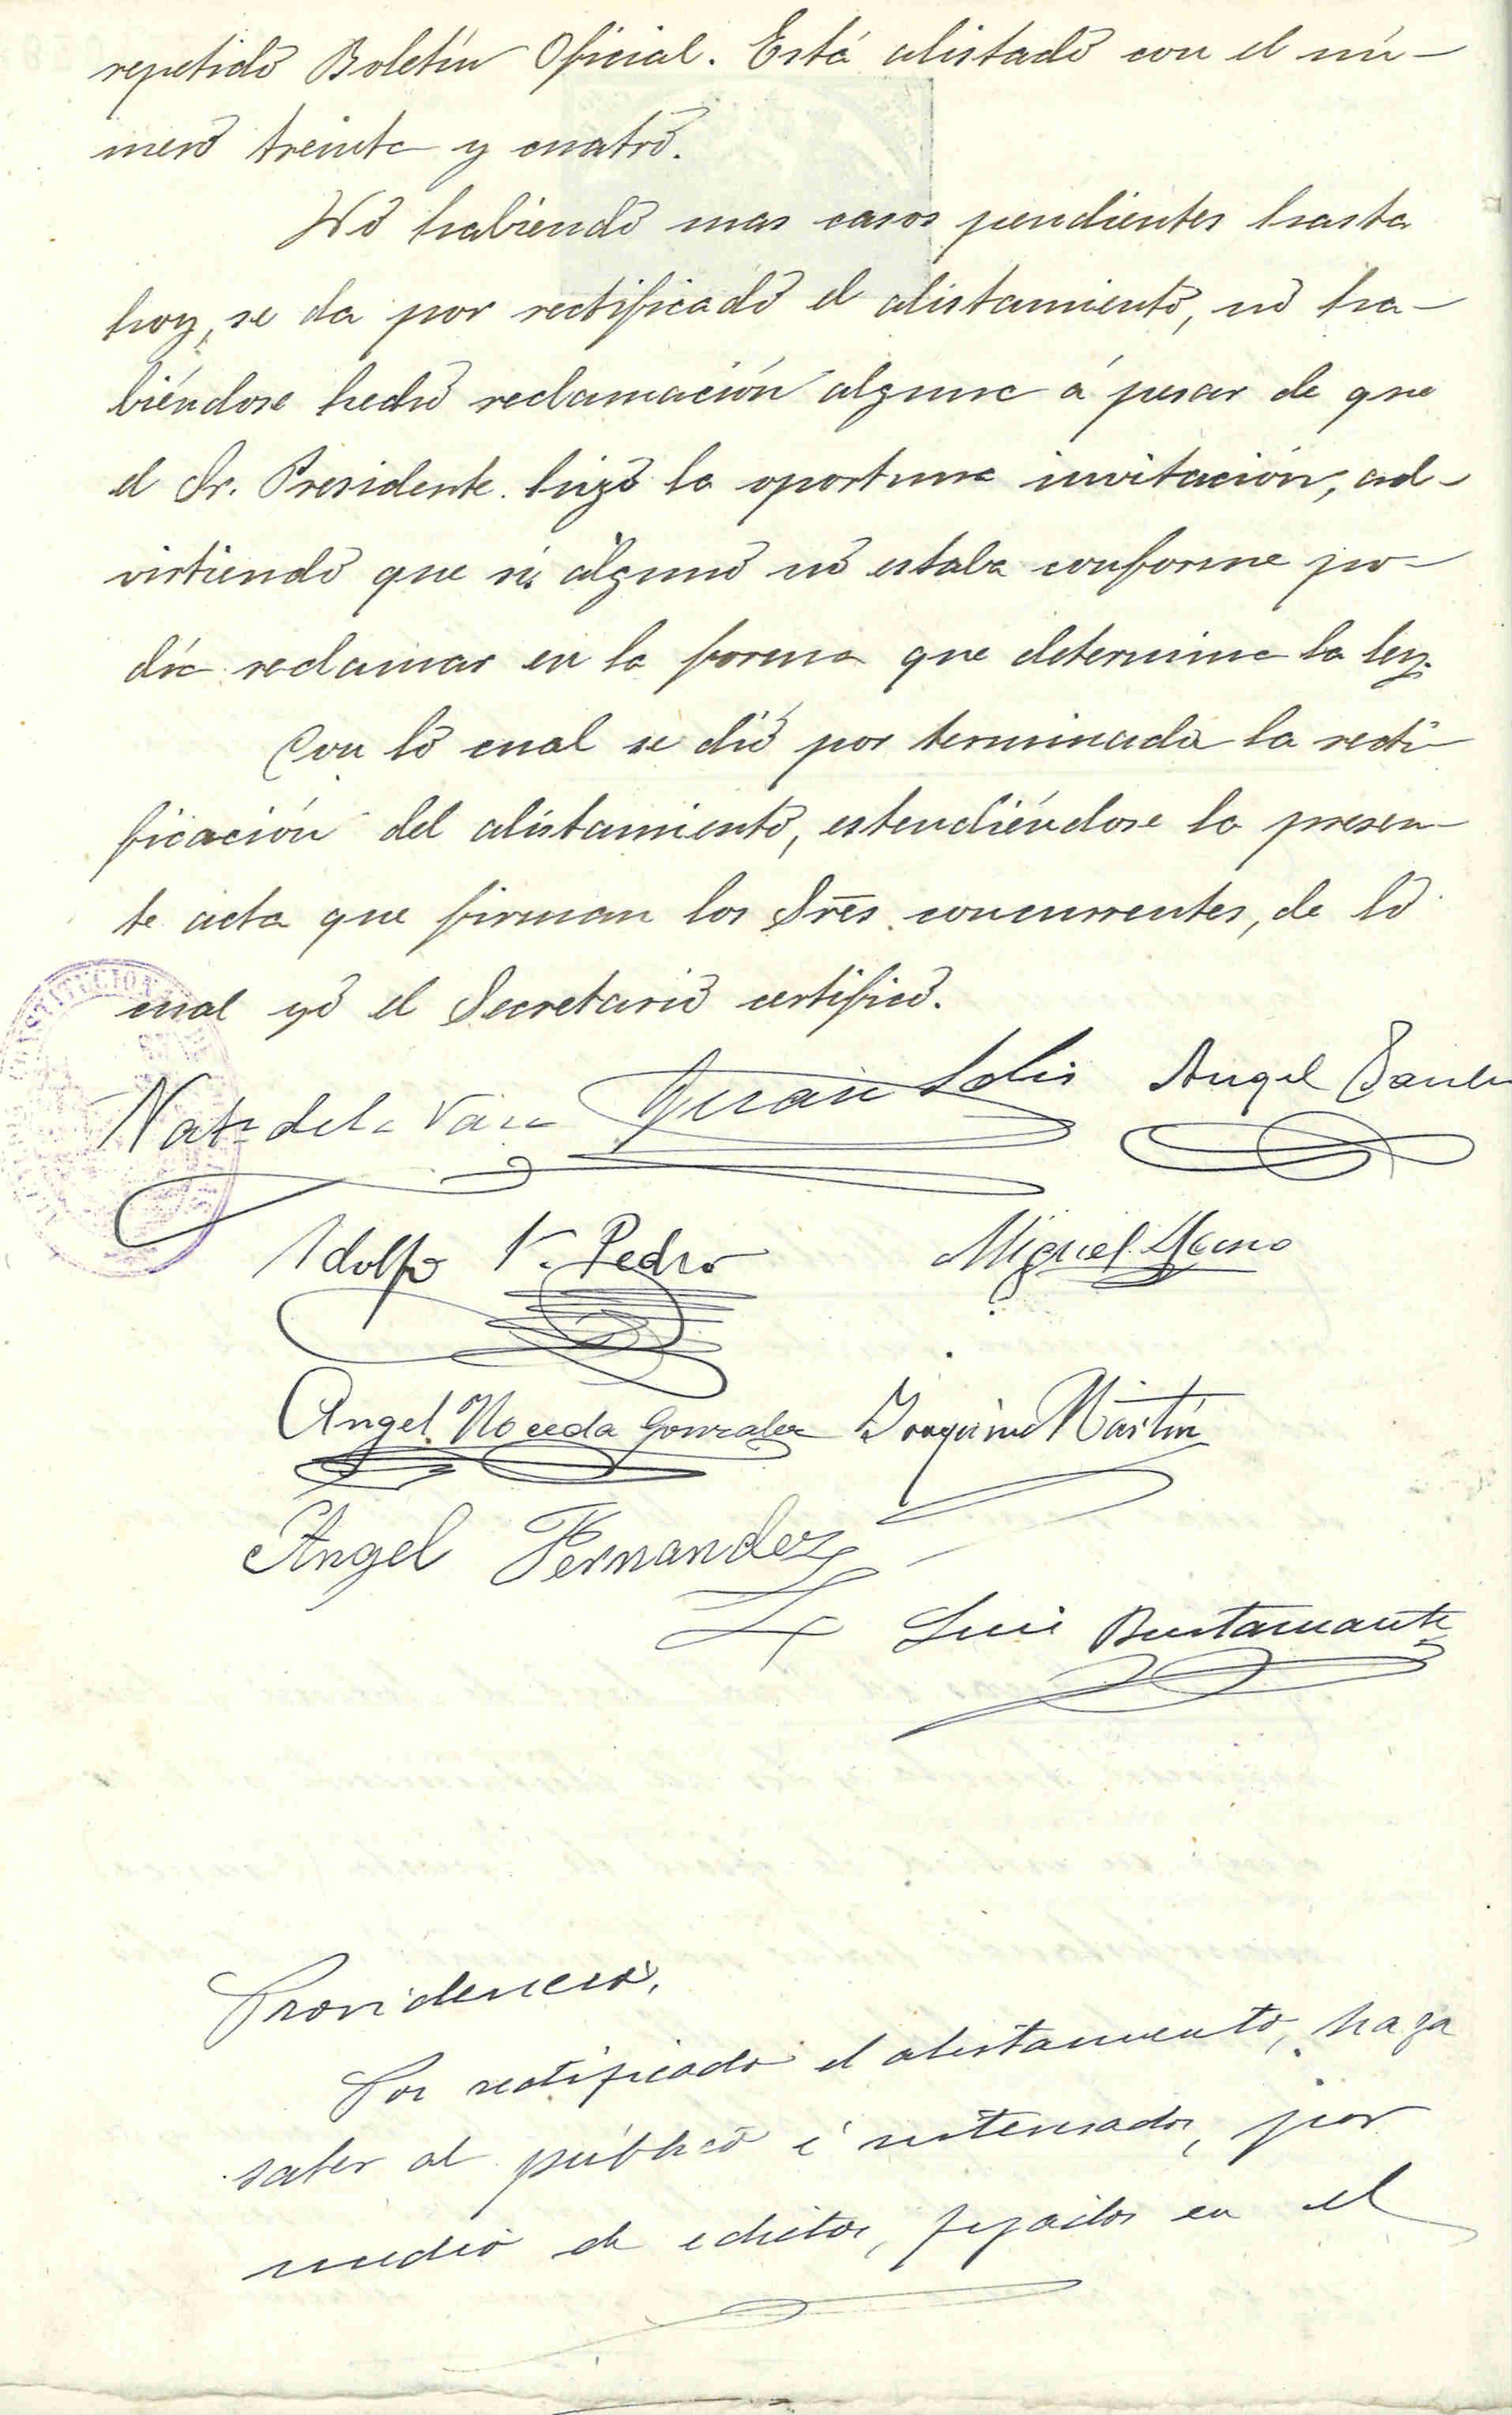 repetido Boletín Oficial. Está alistado con el nú-
mero treinta y cuatro.
No habiendo mas casos pendientes hasta
hoy, se da por rectificado el alistamiento, no ha-
biéndose hecho reclamación alguna á pesar de que
el Sr. Presidente hizo la oportuna invitación, ad-
virtiendo que si alguno no estaba conforme po-
día reclamar en la forma que determina la ley.
Con lo cual se dió por terminada la recti-
ficación del alistamiento, estendiéndose la presen-
te acta que firman los Sres. concurrentes, de lo
cual yo el Secretario certifico.
CONSTITUCION
de la Juan Solis Angel
Adolfo V. Pedro Miguel
Angel Noceda Gonzalez Joaquin Martín
Angel Fernandez
Luis Bustamante
Providencia.
Por rectificado el alistamiento, haga
saber al público é interesados, por
medio de edictos, fijados en el